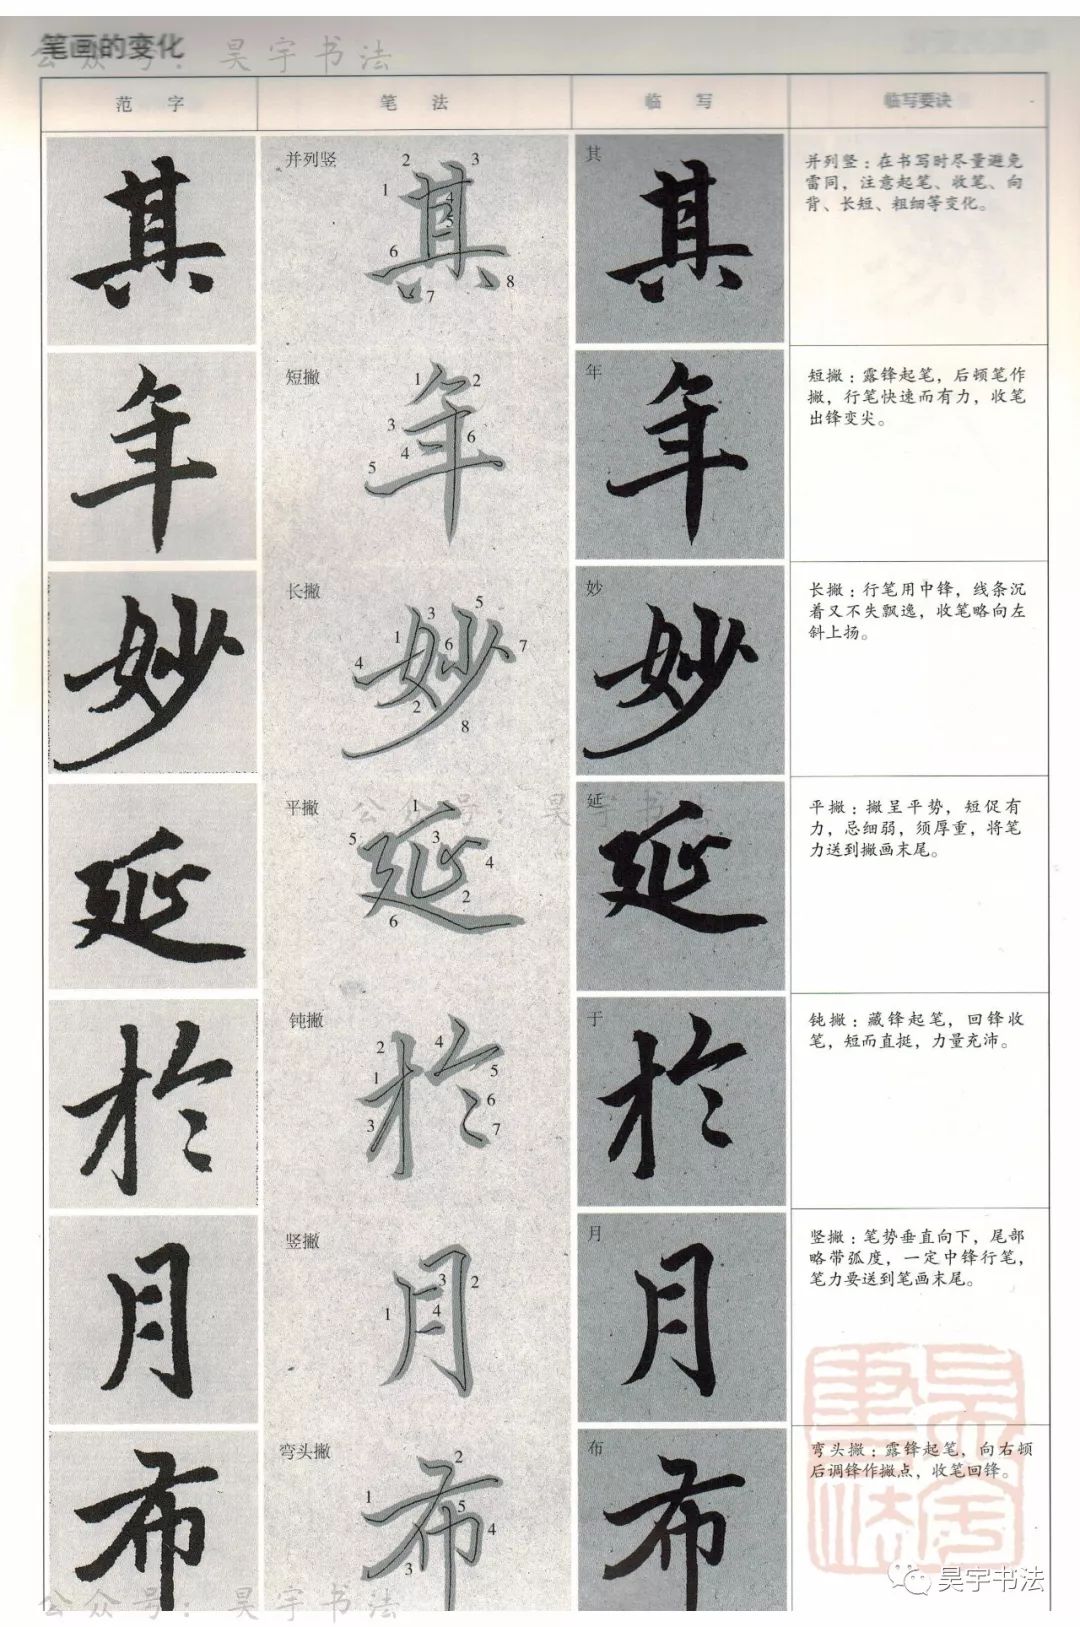 笔画的变化
公众号：昊宇书法
范 字 笔 法 临 写 临写要诀
其
并列竖
1 2 3 4 5 6 7 8
其
其
并列竖：在书写时尽量避免
雷同，注意起笔、收笔、向
背、长短、粗细等变化。
年
短撇
1 2 3 4 5 6
年
年
短撇：露锋起笔，后顿笔作
撇，行笔快速而有力，收笔
出锋变尖。
妙
长撇
1 2 3 4 5 6 7 8
妙
妙
长撇：行笔用中锋，线条沉
着又不失飘逸，收笔略向左
斜上扬。
延
平撇
1 2 3 4 5 6
延
延
公众号：昊宇书
平撇：撇呈平势，短促有
力，忌细弱，须厚重，将笔
力送到撇画末尾。
於
钝撇
1 2 3 4 5 6 7
于
於
钝撇：藏锋起笔，回锋收
笔，短而直挺，力量充沛。
月
竖撇
1 2 3 4
月
月
竖撇：笔势垂直向下，尾部
略带弧度，一定中锋行笔，
笔力要送到笔画末尾。
布
弯头撇
1 2 3 4 5
布
布
弯头撇：露锋起笔，向右顿
后调锋作撇点，收笔回锋。
昊宇书法
昊宇书法
公众号：昊宇书法